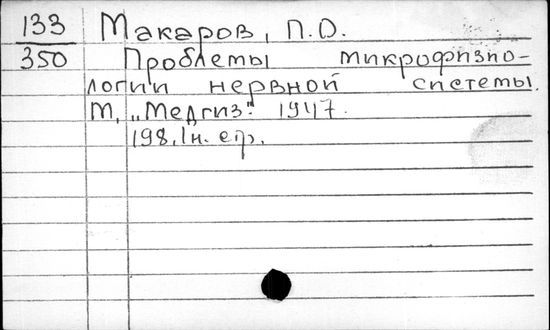 133 Макаров, П.О.
350 Проблемы микрофизио-
логии нервной системы.
М, „Медгиз". 1947.
198, 1н. стр.